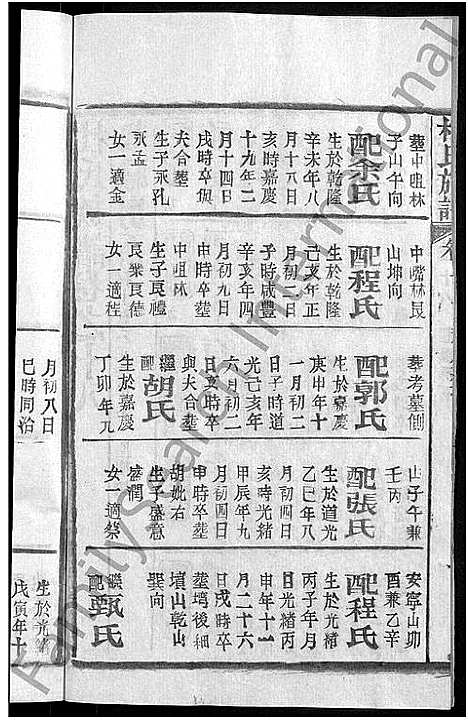 葬中咀林
子山午向
配余氏
生於乾隆
辛未年八
月十八日
亥時嘉慶
十九年二
月十四日
戌時卒㱕
夫合葬
生子永孔
永孟
女一適金
中嘴林艮
山坤向
配程氏
生於乾隆
己亥年正
月初二日
子時咸豐
辛亥年四
月初九日
申時卒葬
中咀林
生子良禮
良樂良德
女一適桂
葬考墓側
配郭氏
生於嘉慶
庚申年十
一月初二
日子時道
光己亥年
六月初二
日亥時卒
與夫合葬
繼配胡氏
生於嘉慶
丁卯年九
山子午兼
壬丙
配張氏
生於道光
乙巳年八
月初四日
亥時光緒
甲辰年九
月初四日
申時卒葬
胡妣右
生子盛意
盛潤
女一適蔡
安寧山卯
酉兼乙辛
配程氏
生於光緒
丙子年月
日光緒丙
申年十一
月二十六
日戌時卒
葬塆後細
墳山乾山
巽向
繼配甄氏
月初八日
巳時同治
生於光緒
戊寅年十
FamilySearch International